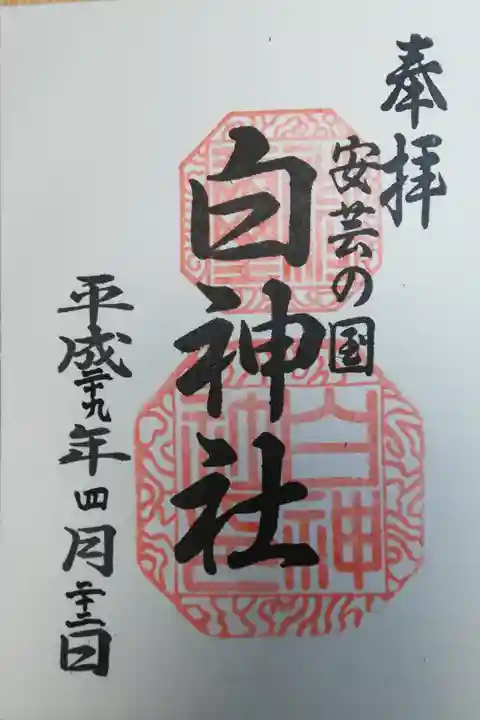 奉拝
安芸の国
白神社
平成二十九年四月二十二日